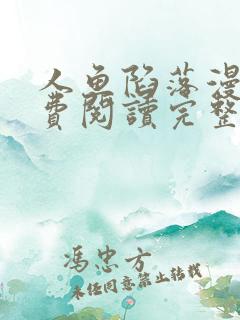 人鱼陷落漫
费阅读完整
冯忠方
未经同意禁止转载